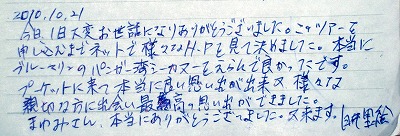 2010.10.21
今日、1日大変お世話になりありがとうございました。このツアーを
申し込むまでネットで様々なH.Pを見て決めました。本当に
ブルーマリンのパンガー湾シーカヌーをえらんで良かったです。
プーケットに来て本当に良い思い出が出来又様々な
親切な方に出会い最高の思い出ができました。
まゆみさん、本当にありがとうございました。又来ます。